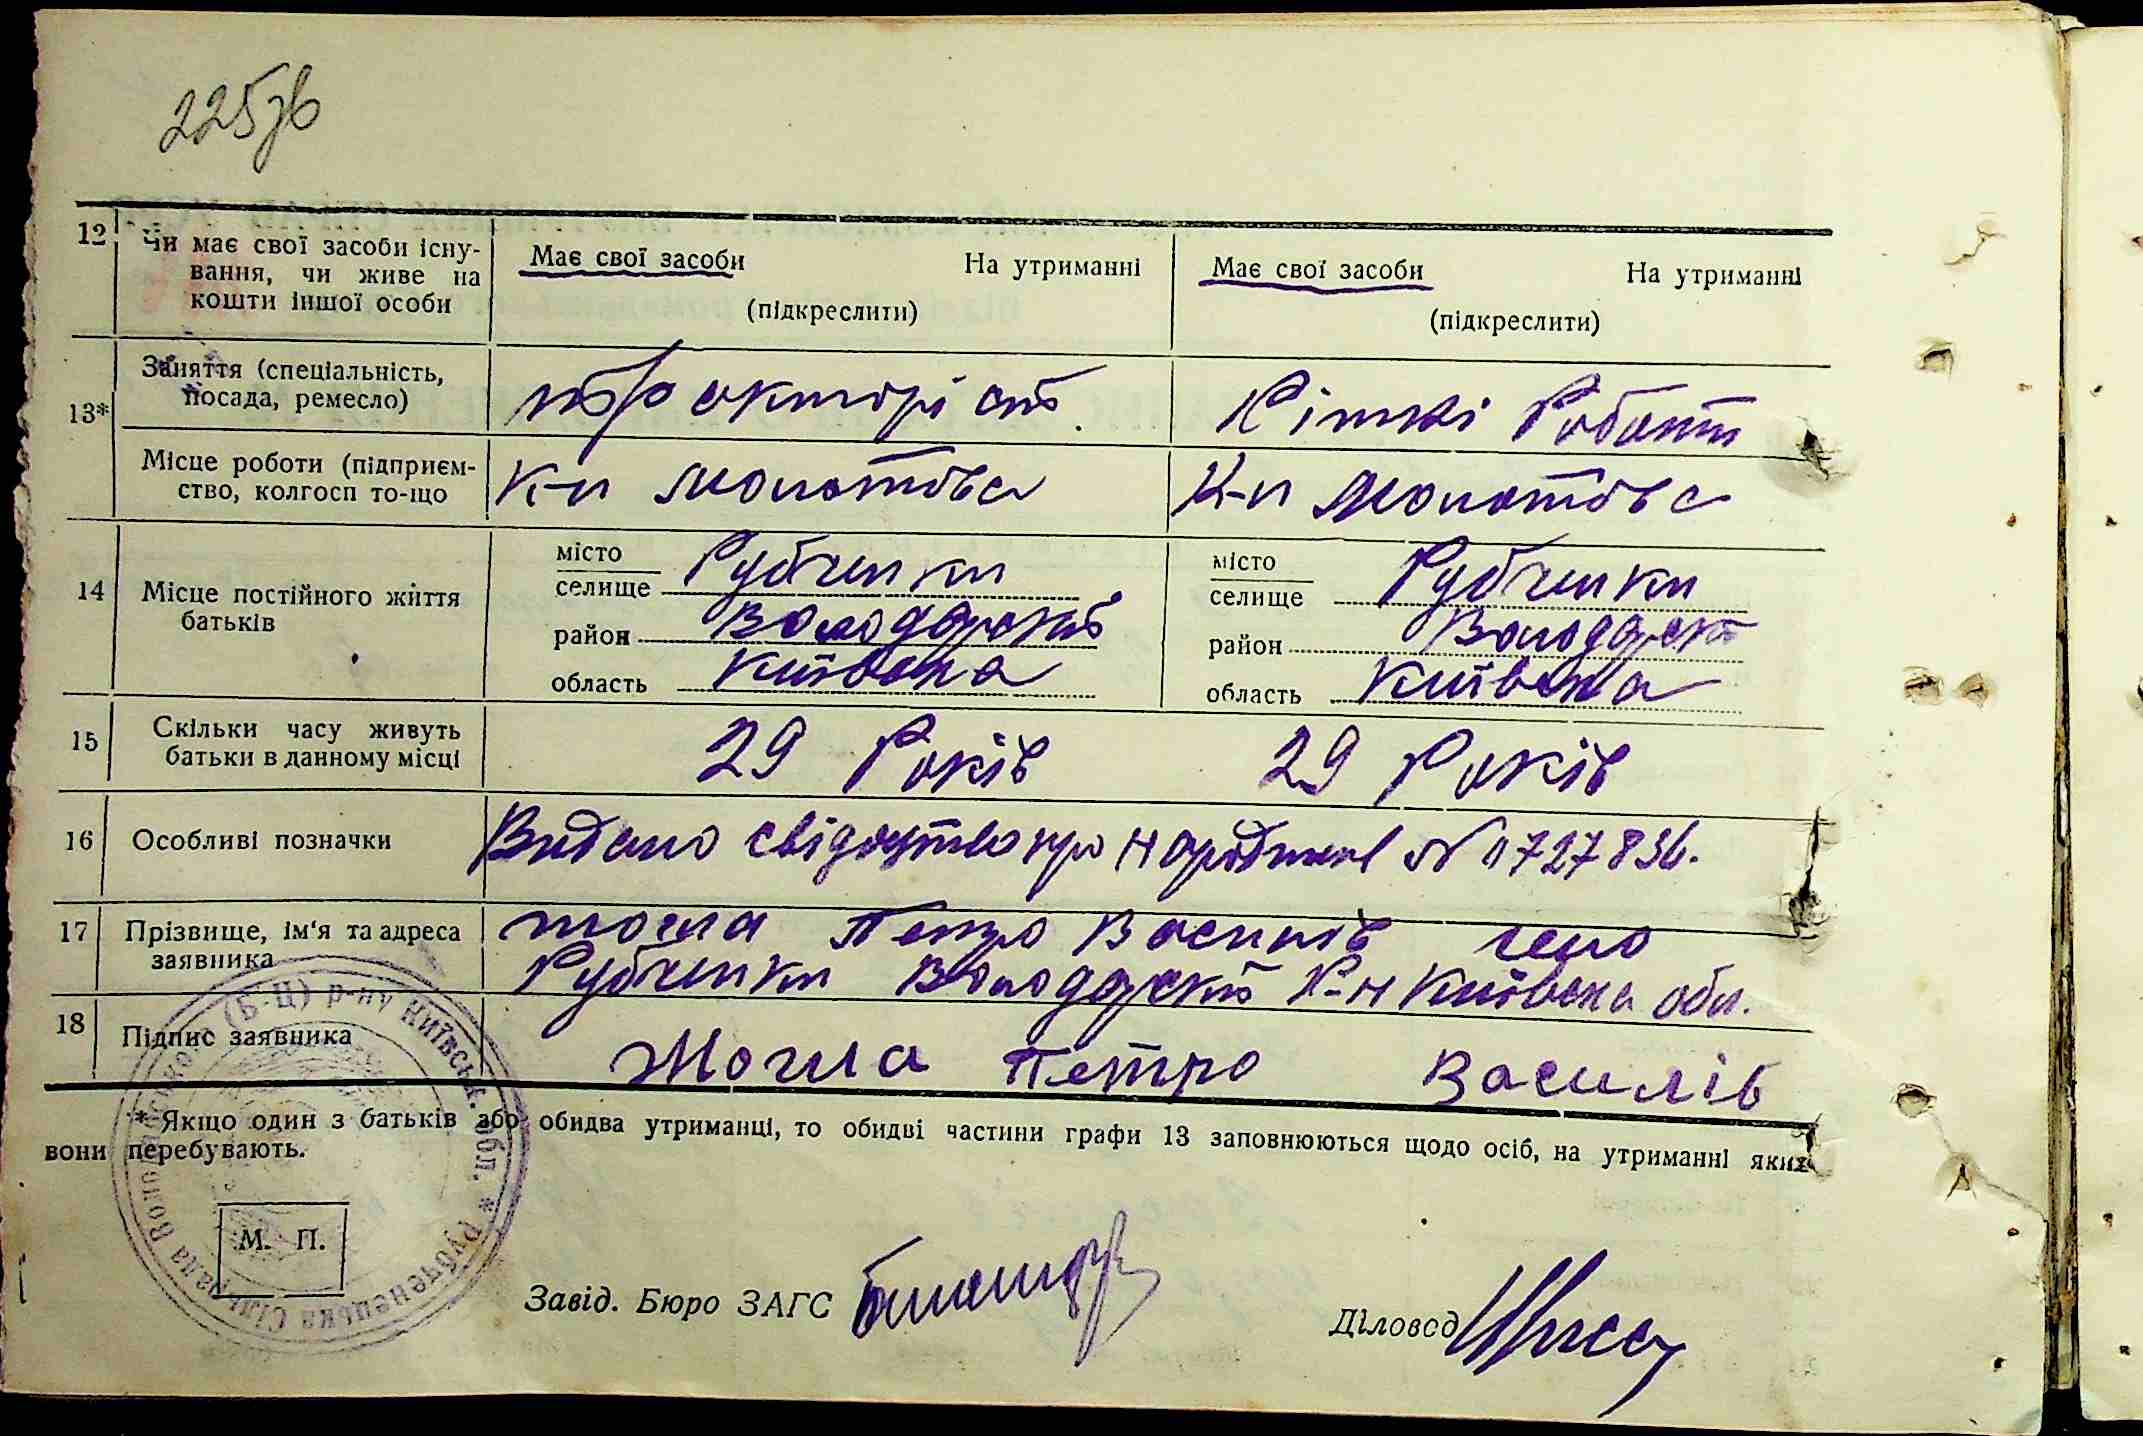 225зв
12 Чи має свої засоби існу-
вання, чи живе на
кошти іншої особи
Має свої засоби На утриманні
(підкреслити)
Має свої засоби На утриманні
(підкреслити)
13* Заняття (спеціальність,
посада, ремесло)
тракторіст Кіткі Робати
Місце роботи (підприєм-
ство, колгосп то-що
К-п Молотова К-п Молотова
14 Місце постійного життя
батьків
місто
селище Рубченки
район Володарский
область Київска
місто
селище Рубченки
район Володарск
область Київска
15 Скільки часу живуть
батьки в данному місці
29 Років 29 Років
16 Особливі позначки
Видано свідоцтво про народженн №
17 Прізвище, ім'я та адреса
заявника
Петро Василів село
Рубченки Володарский Р-н Київска обл.
18 Підпис заявника
Петро Василів
* Якщо один з батьків або обидва утриманці, то обидві частини графи 13 заповнюються щодо осіб, на утриманні яких
вони перебувають.
Рубченецька Сільрада Володарського (Б-Ц) р-ну Київськ. обл. *
М. П.
Завід. Бюро ЗАГС
Діловод